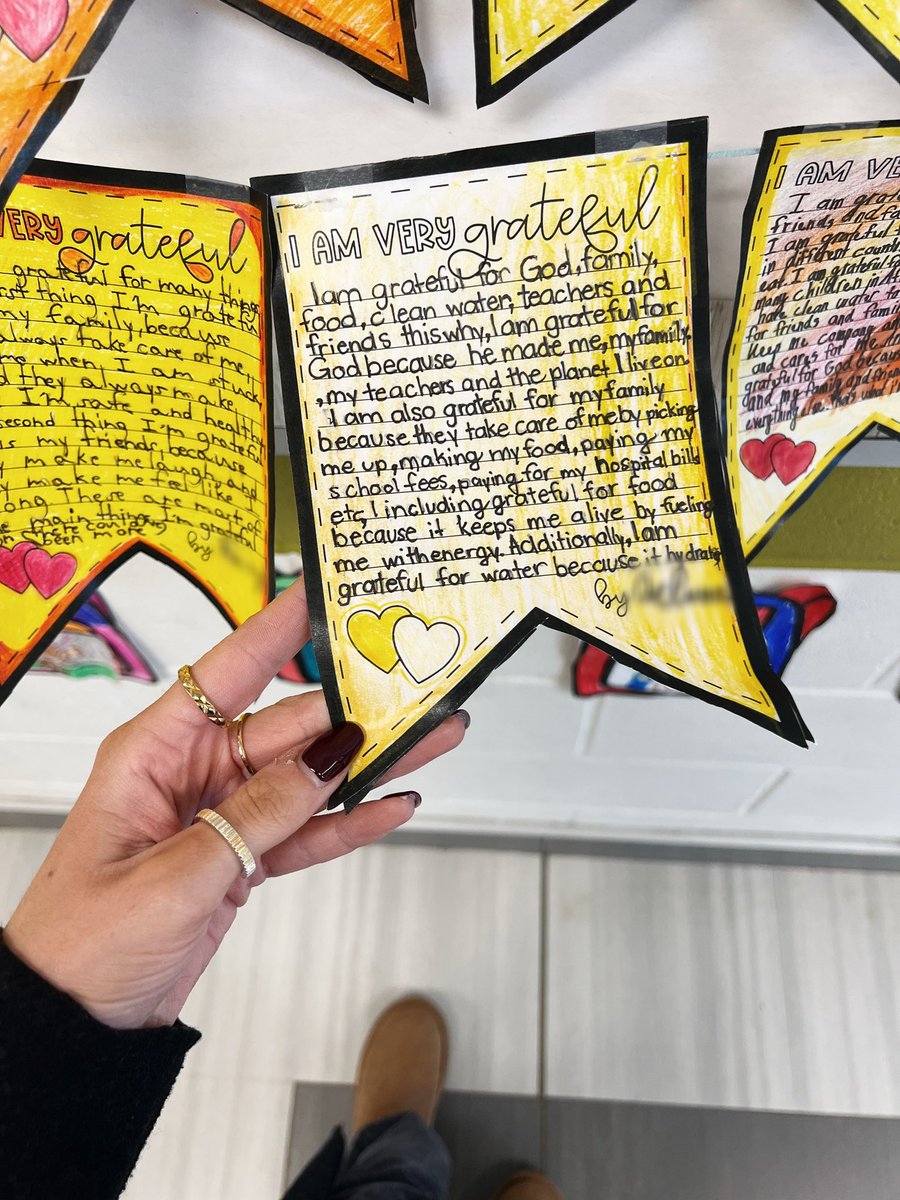 VERY grateful
grateful for many things
first thing I'm grateful
my family, because
always take care of me,
me when I am stuck
d they always make
I'm safe and healthy
second thing I'm grateful
is my friends, because
y make me laugh, and
y make me feel like
ong These are most of
main things I'm grateful
been more
by
I AM VERY grateful
I am grateful for God, family,
food, clean water, teachers and
friends this why, I am grateful for
God because he made me, my family,
, my teachers and the planet I live on
I am also grateful for my family
because they take care of me by picking
me up, making my food, paying my
school fees, paying for my hospital bills
etc, I including grateful for food
because it keeps me alive by fueling
me with energy. Additionally, I am
grateful for water because it hydrate
by
I AM VE
I am grat
friends and fa
I am grateful f
in different count
eat. I am grateful fo
many children in A
have clean water t
for friends and famil
Keep me company an
and cares for me
grateful for God becaus
and my family and frien
everything else. That's